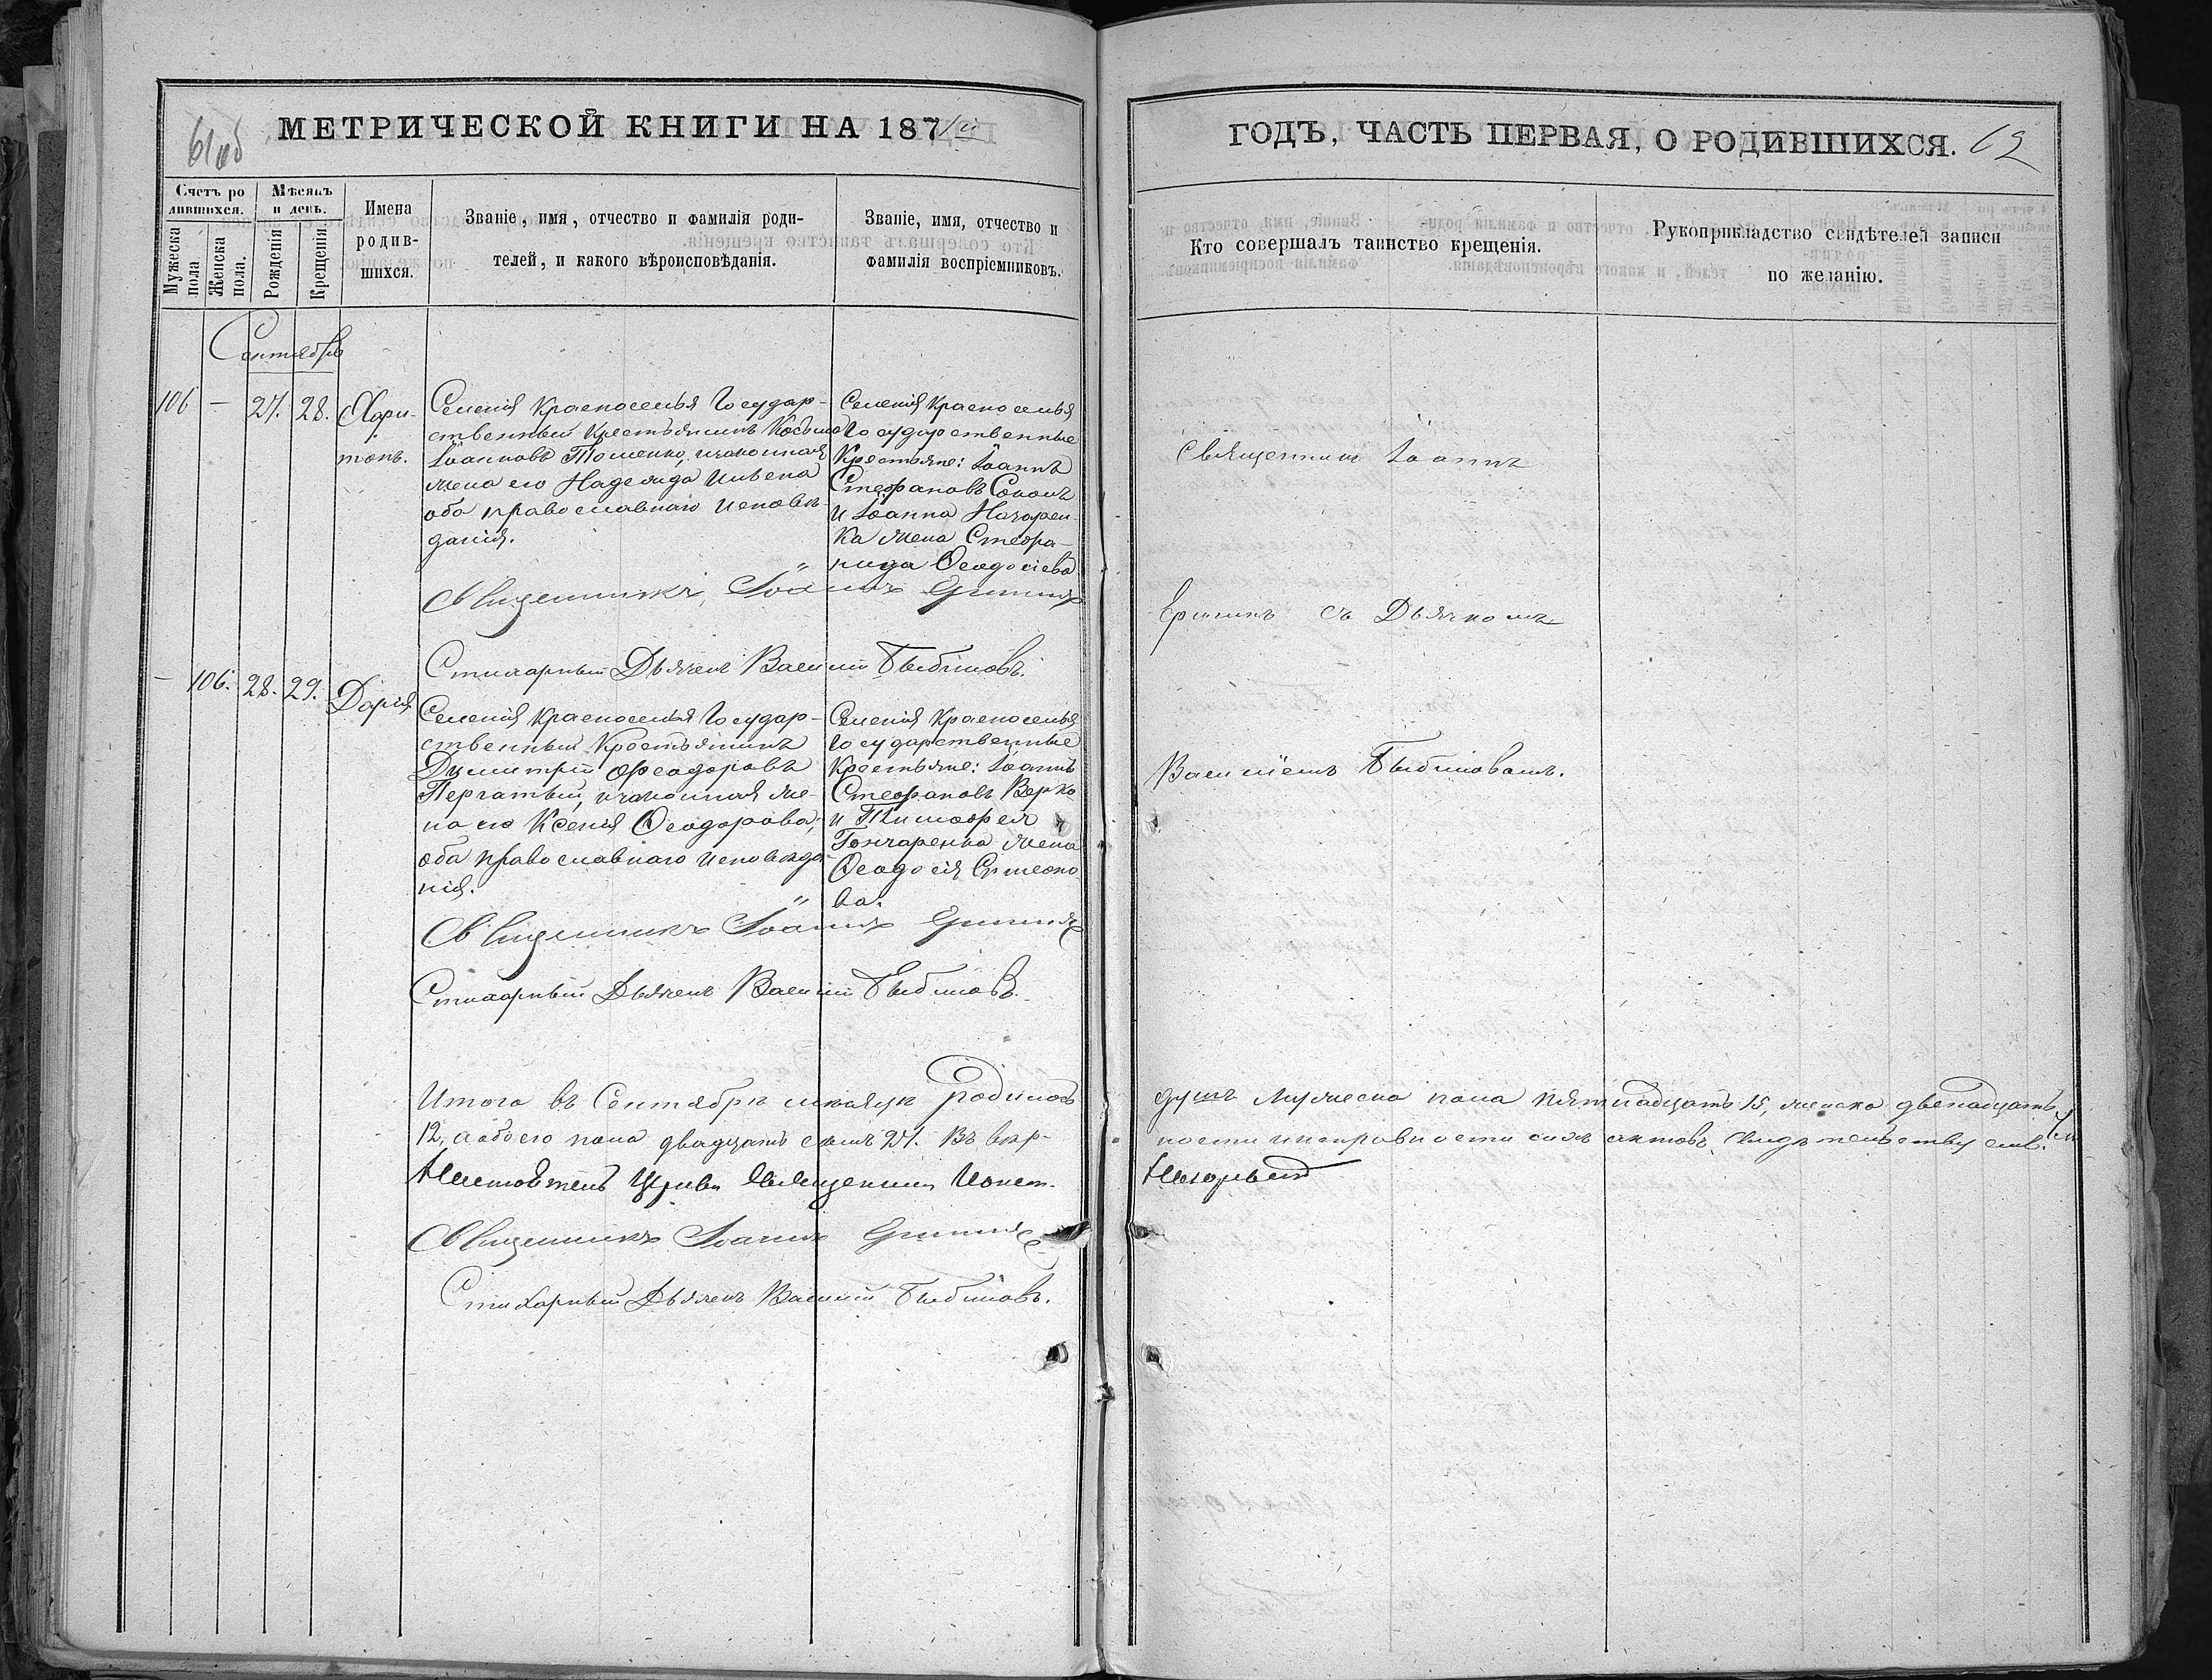 61об
МЕТРИЧЕСКОЙ КНИГИ НА 1871й
Счетъ родившихся.
Мѣсяцъ и день.
Мужеска пола
Женска пола.
Рожденія
Крещенія.
Имена родив-
шихся.
Званіе, имя, отчество и фамилія роди-
телей, и какого вѣроисповѣданія.
Званіе, имя, отчество и
фамилія воспріемниковъ.
Сентябрь
106 — 27. 28. Хари-
тонъ.
Селенія Красноселья Государ-
ственный Крестьянинъ Косьма
Іоанновъ Томенко, изаконная
жена его Надежда Ильева
оба православнаго исповѣ-
данія.
Селенія Красноселья
Государственные
Крестьяне: Іоаннъ
Стефановъ Соколъ
и Іоанна
жена Стефа-
нида Ѳеодосіева
Священникъ Іоаннъ
Стихарный Дьячекъ Василій
— 106. 28. 29. Дарія
Селенія Красноселья Государ-
ственный Крестьянинъ
Димитрій Ѳеодоровъ
Перчатый, изаконная же-
на его Ксенія Ѳеодорова;
оба православнаго исповѣда-
нія.
Селенія Красноселья
Государственные
Крестьяне: Іоаннъ
Стефановъ
и Тимофея
Гончаренка жена
Ѳеодосія
ва.
Священникъ Іоаннъ
Стихарный Дьячекъ Василій
Итого въ Сентябрѣ мѣсяцѣ родилось
12, а обоего пола двадцать семь 27. Въ вѣр-
Настоятель Церкви Священникъ
Священникъ Іоаннъ
Стихарный Дьячекъ Василій
ГОДЪ, ЧАСТЬ ПЕРВАЯ, О РОДИВШИХСЯ.
62
Кто совершалъ таинство крещенія.
Рукоприкладство свидѣтелей записи
по желанію.
Священникъ Іоаннъ
съ Дьячкомъ
Василіемъ
душъ мужеска пола пятнадцать 15, женска двенадцать
ности и исправности сихъ актовъ свидѣтельствуемъ.